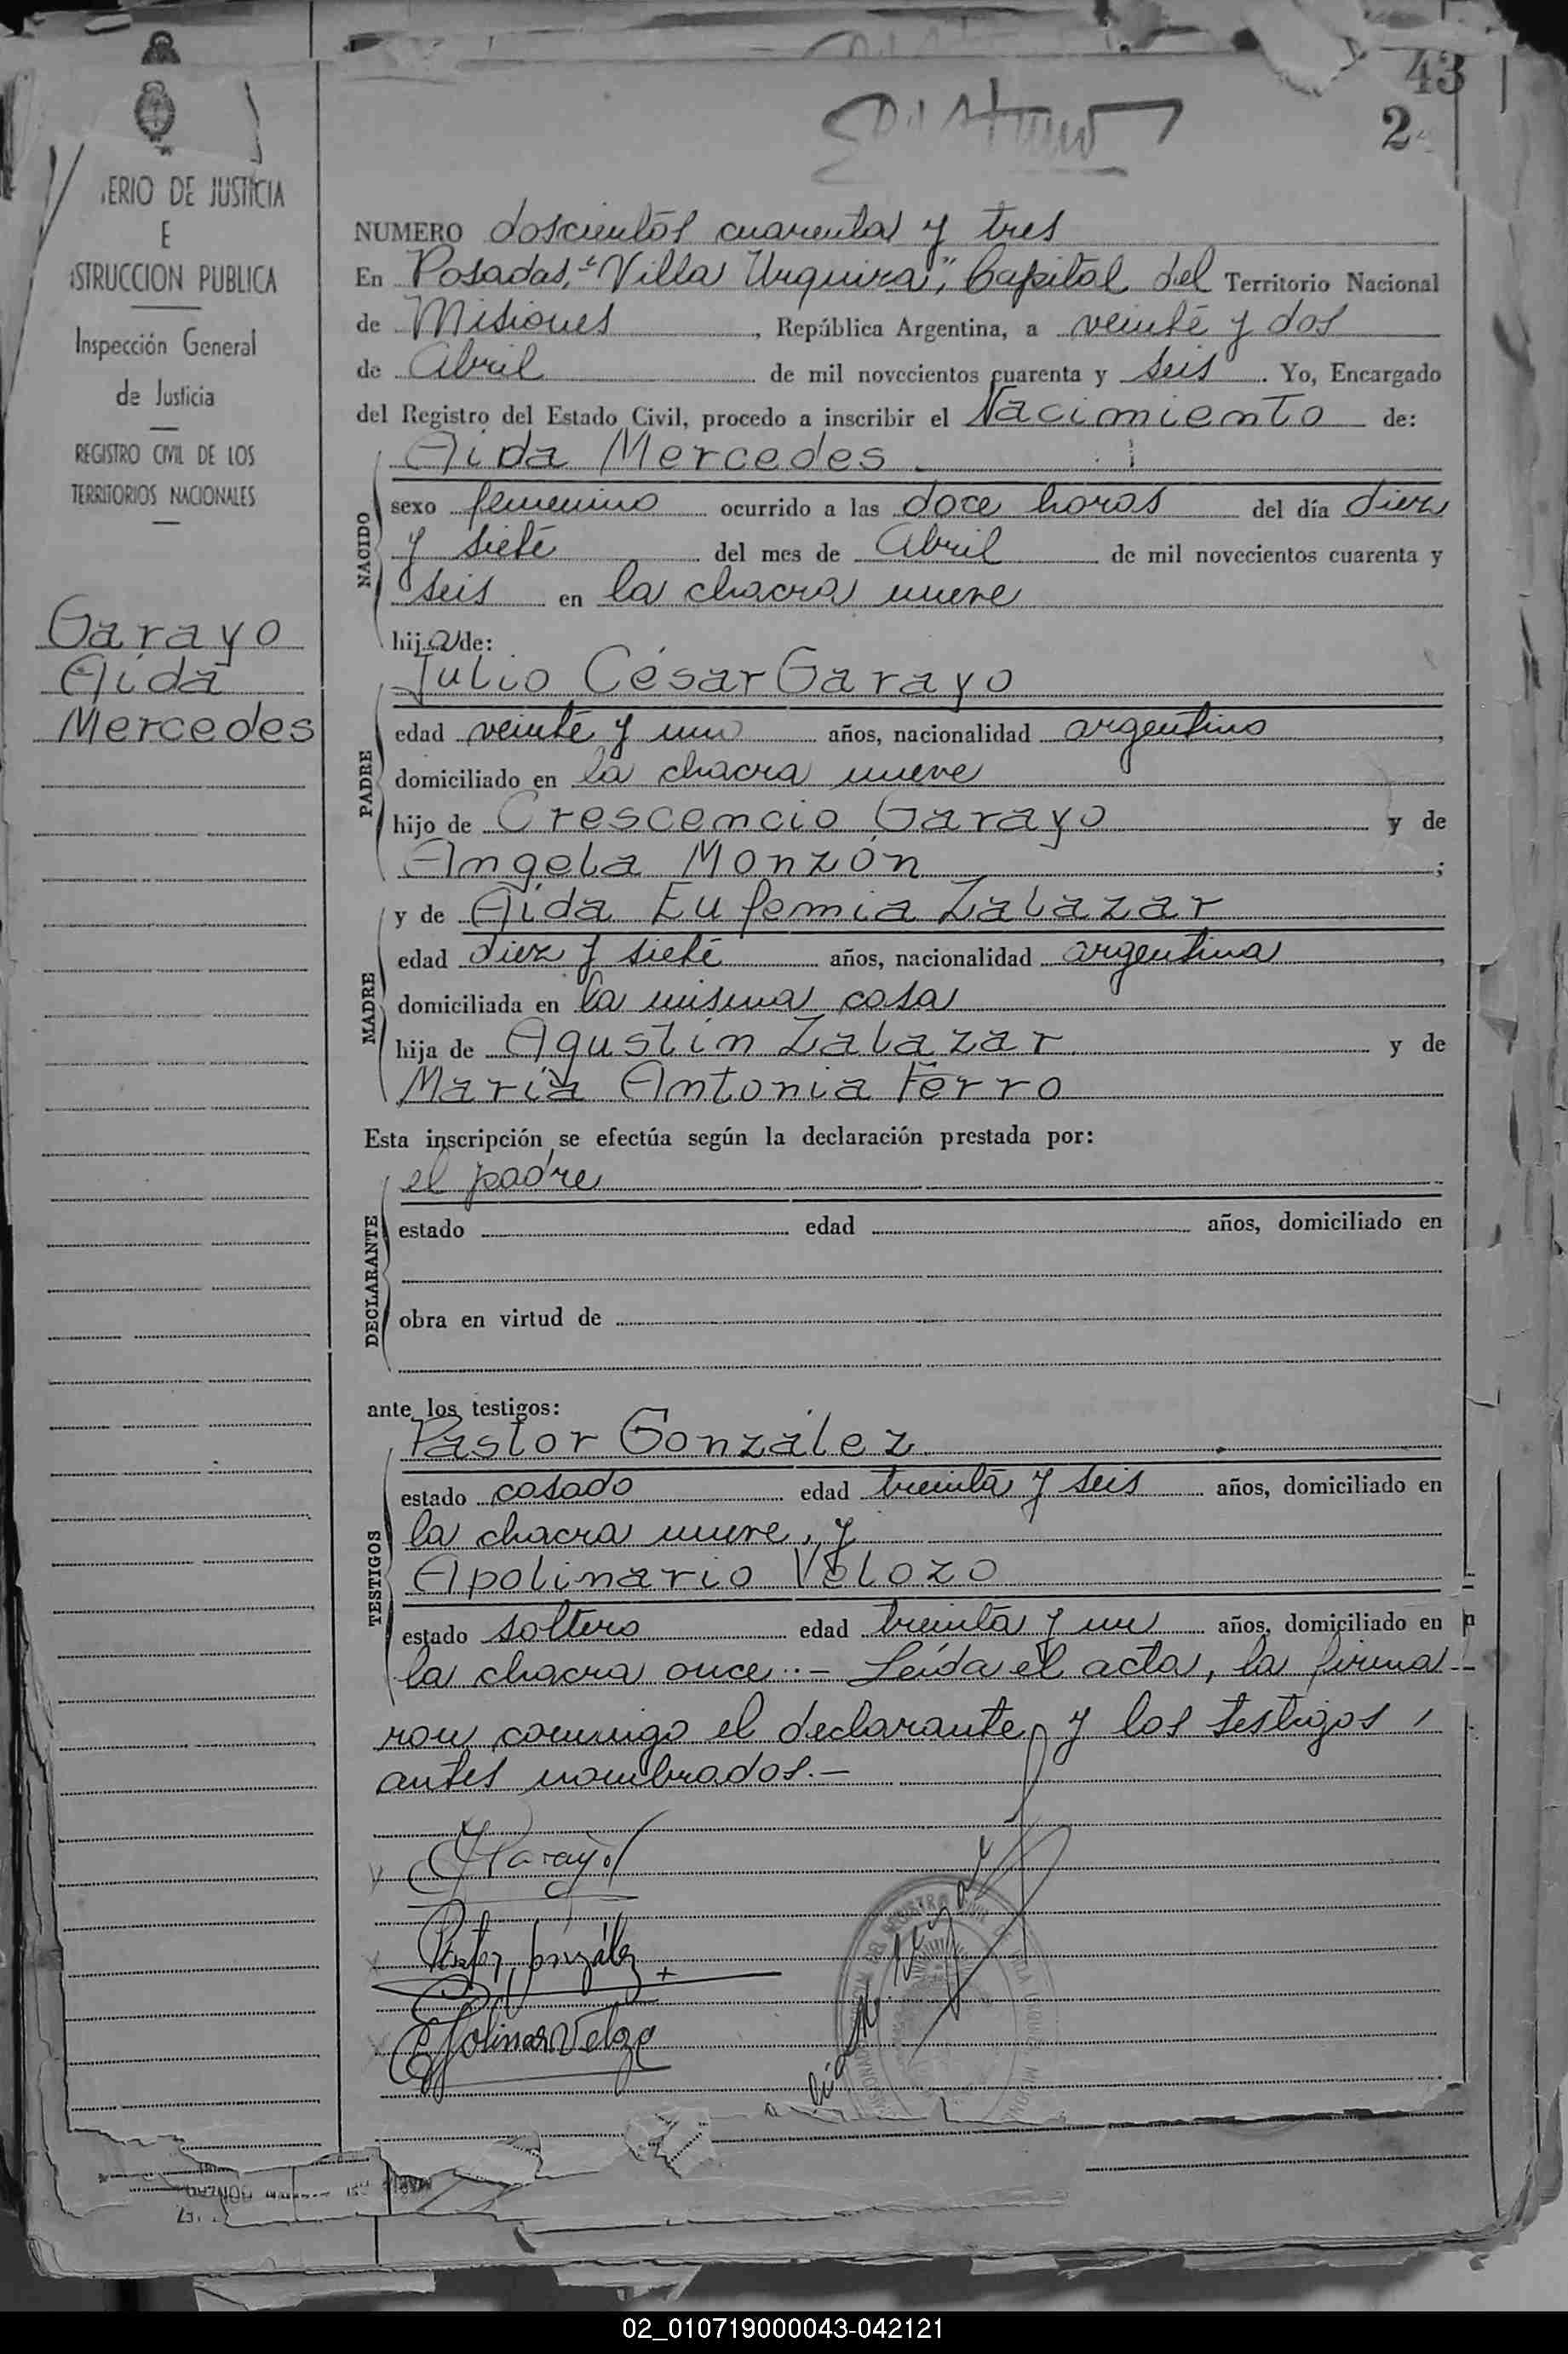 43
2
ERIO DE JUSTICIA
E
STRUCCION PUBLICA
Inspección General
de Justicia
REGISTRO CIVIL DE LOS
TERRITORIOS NACIONALES
Garayo
Aida
Mercedes
NUMERO doscientos cuarenta y tres
En Posadas, "Villa Urquiza", Capital del Territorio Nacional
de Misiones, República Argentina, a veinte y dos
de Abril de mil novecientos cuarenta y seis. Yo, Encargado
del Registro del Estado Civil, procedo a inscribir el Nacimiento de:
NACIDO
Aida Mercedes.
sexo femenino ocurrido a las doce horas del día diez
y siete del mes de Abril de mil novecientos cuarenta y
seis en la chacra nueve
hija de:
PADRE
Julio César Garayo
edad veinte y un años, nacionalidad argentino,
domiciliado en la chacra nueve
hijo de Crescencio Garayo y de
Angela Monzón;
MADRE
y de Aida Eufemia Zalazar
edad diez y siete años, nacionalidad argentina,
domiciliada en la misma casa
hija de Agustín Zalazar y de
María Antonia Ferro
Esta inscripción se efectúa según la declaración prestada por:
DECLARANTE
el padre
estado edad años, domiciliado en
obra en virtud de
ante los testigos:
TESTIGOS
Pastor González.
estado casado edad treinta y seis años, domiciliado en
la chacra nueve, y
Apolinario Velozo
estado soltero edad treinta y un años, domiciliado en
la chacra once.- Leída el acta, la firma
ron conmigo el declarante y los testigos
antes nombrados.-
Garayo
Pastor González
Apolinar Velozo
02_010719000043-042121